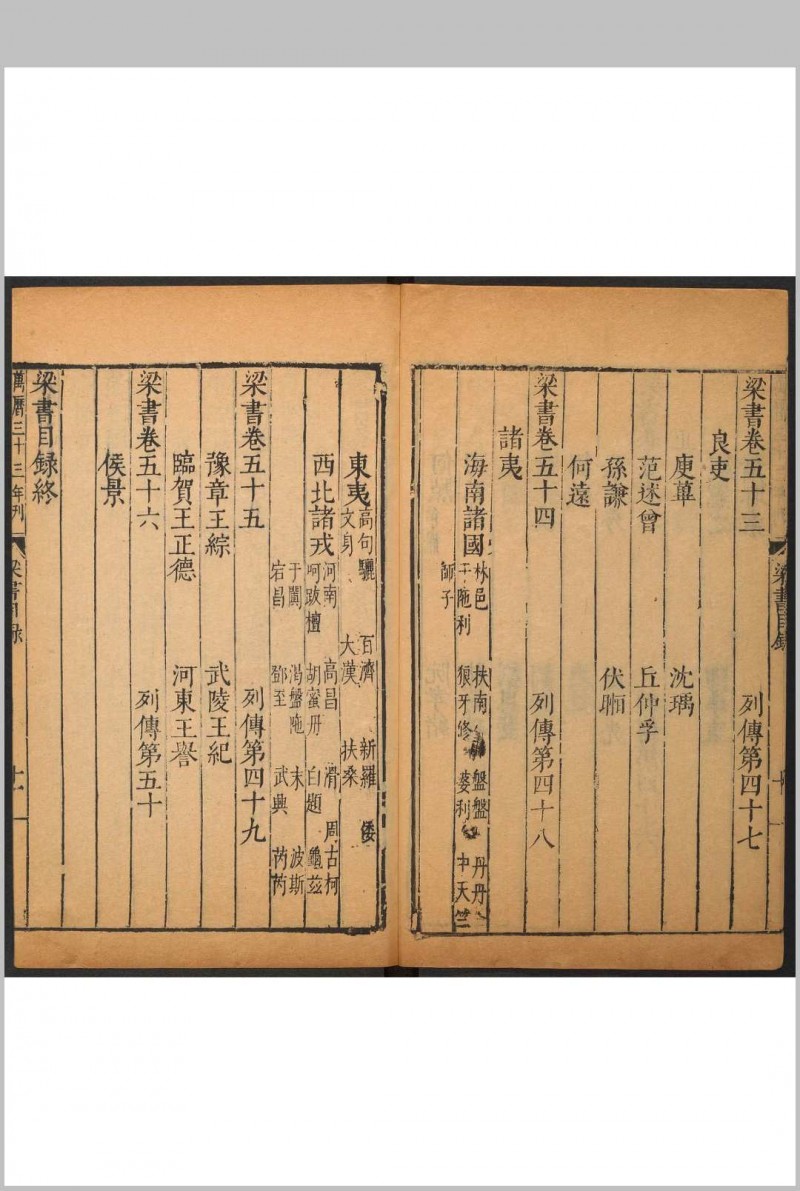 梁書目録
十一
梁書卷五十三　列傳第四十七
良吏
庾蓽　沈瑀
范述曾　丘仲孚
孫謙　伏暅
何遠
梁書卷五十四　列傳第四十八
諸夷
海南諸國
林邑　扶南　盤盤　丹丹
干陁利　狼牙脩　婆利　中天竺
師子
東夷
高句驪　百濟　新羅　倭
文身　大漢　扶桑
西北諸戎
河南　高昌　滑　周古柯
呵跋檀　胡蜜丹　白題　龜茲
于闐　渴盤陁　末　波斯
宕昌　鄧至　武興　芮芮
梁書卷五十五　列傳第四十九
豫章王綜　武陵王紀
臨賀王正德　河東王譽
梁書卷五十六　列傳第五十
侯景
梁書目録終
萬曆三十三年刋
梁書目録
十一